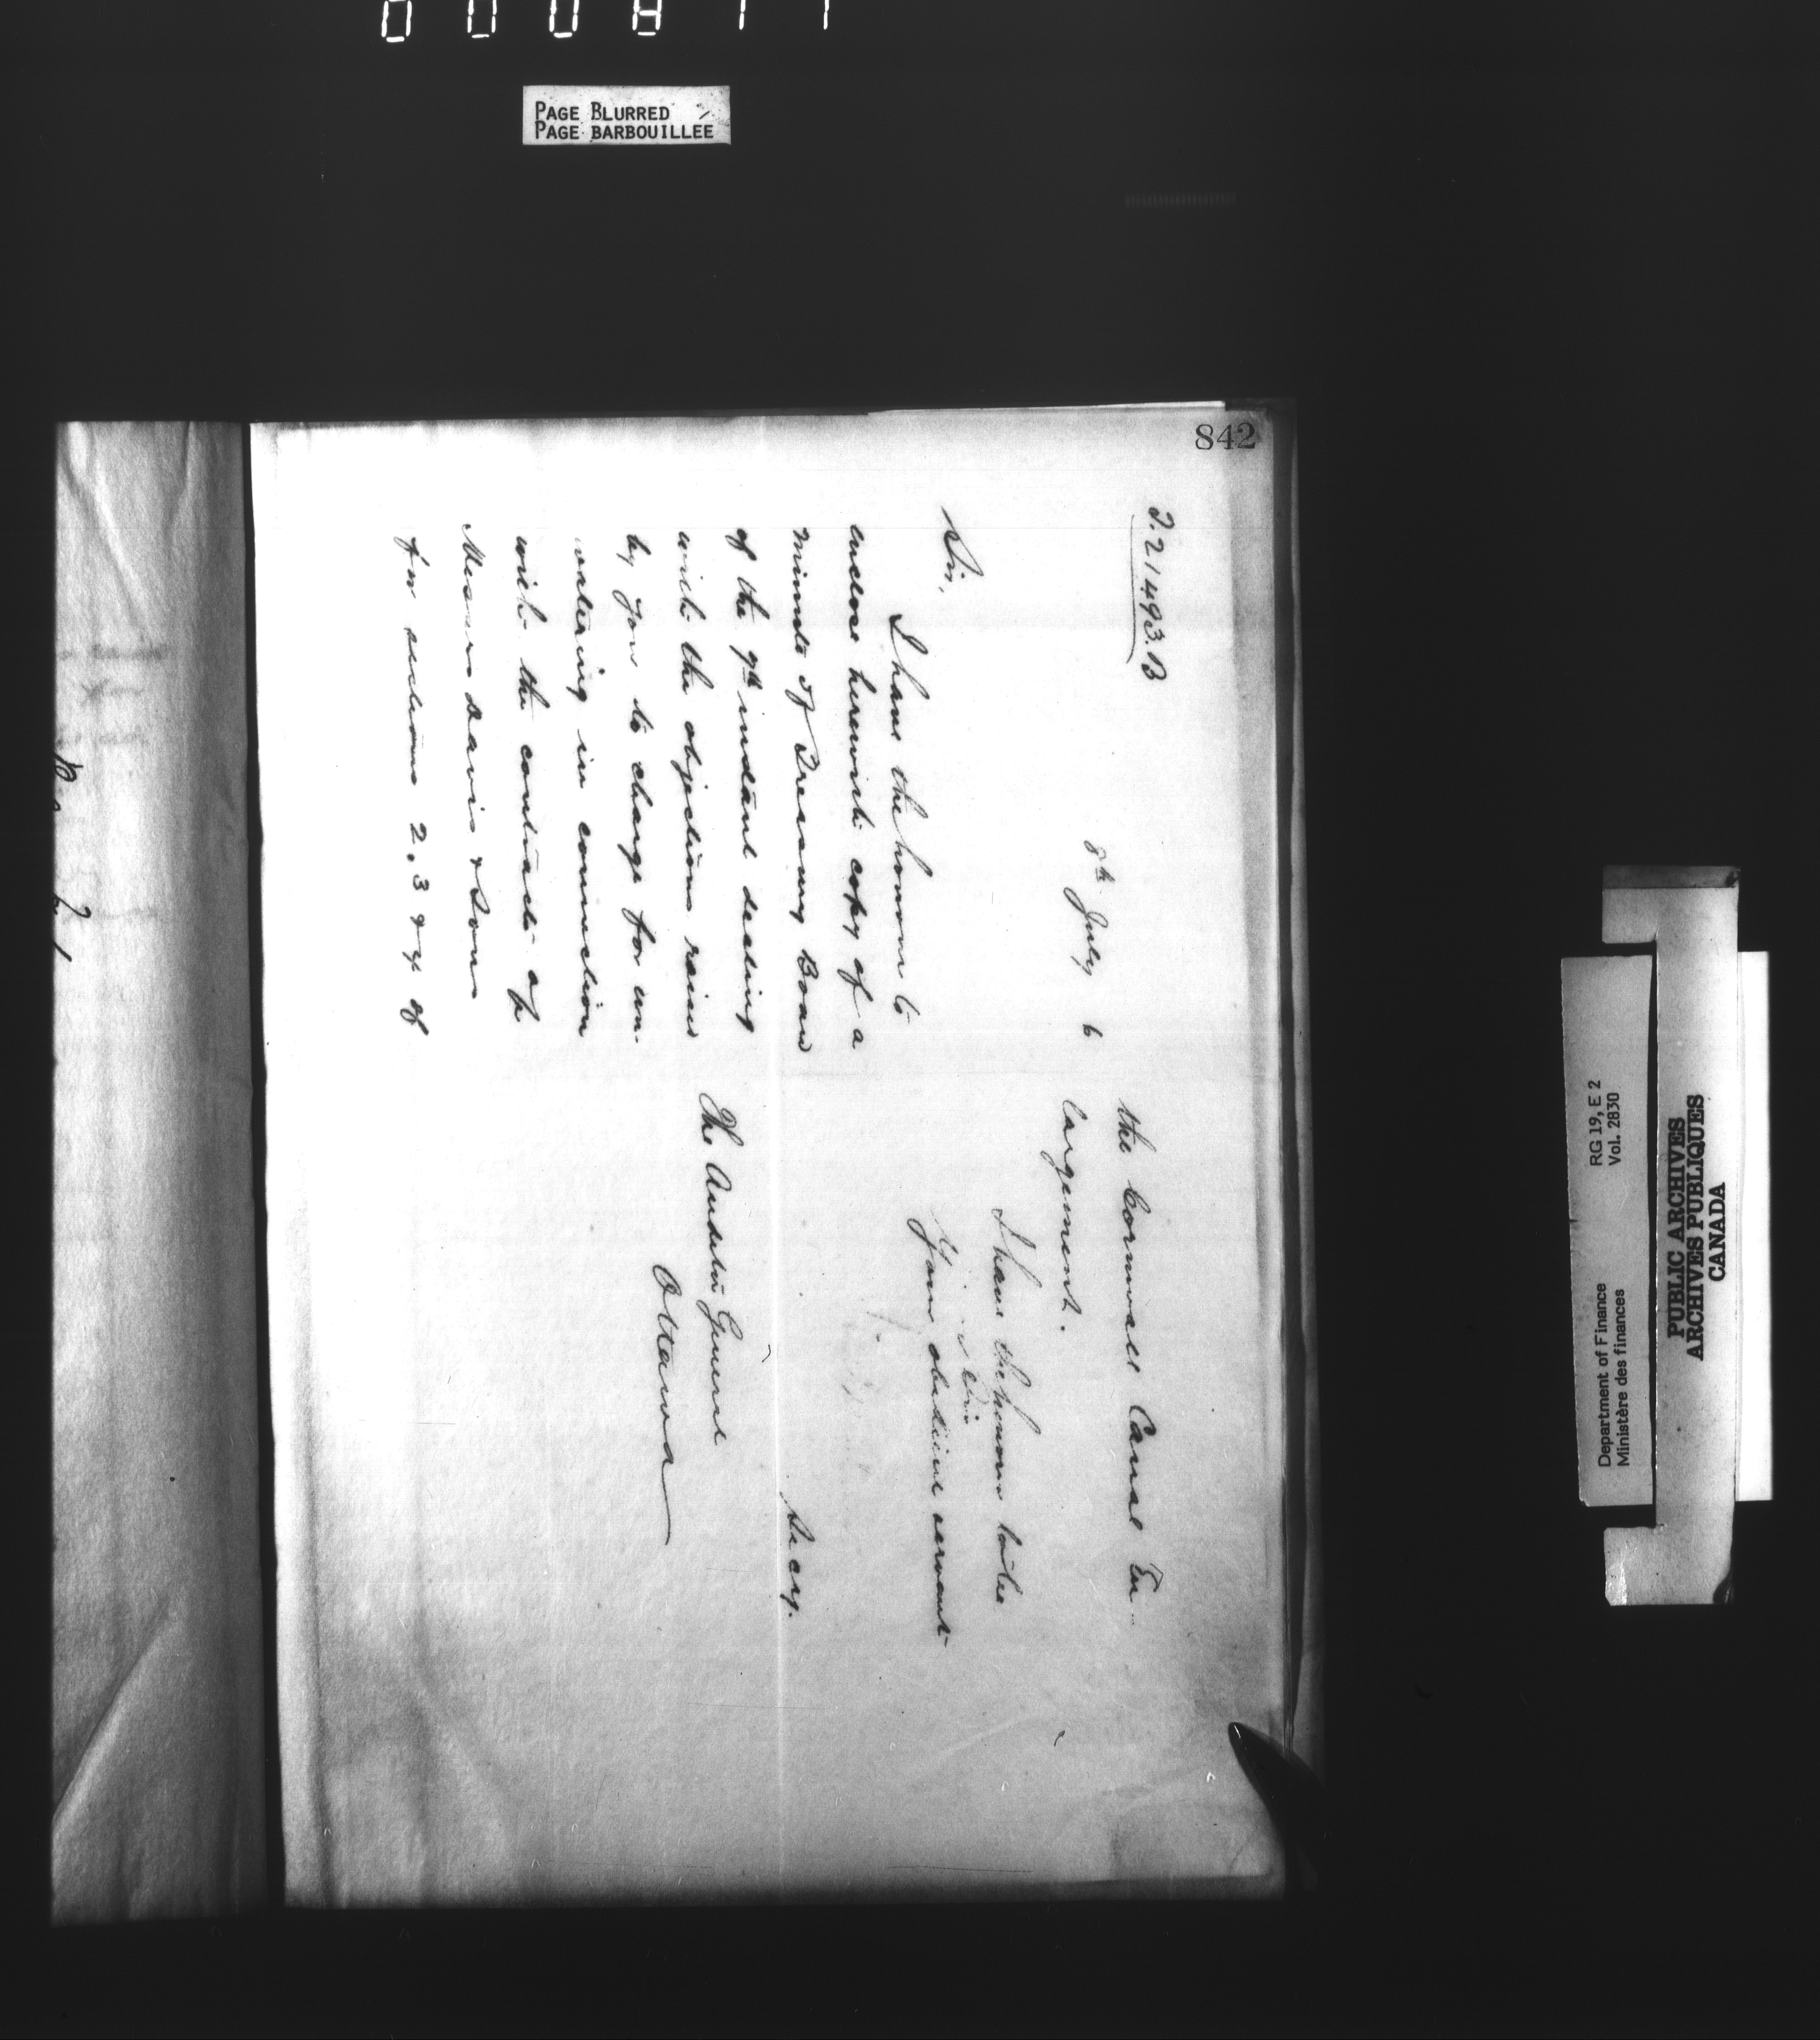 000877
PAGE BLURRED
PAGE BARBOUILLEE
842
2.21493.B
8th July 6
Sir,
I have the honour to
enclose herewith copy of a
minute of Treasury Board
of the 7th instant dealing
with the objections raised
by you to charge for un-
watering in connection
with the contracts of
Messrs Davis & Sons
for sections 2, 3 & 4 of
the Cornwall Canal En-
largement.
I have the honour to be
Sir
Your obedient servant
Secy.
The Auditor General
Ottawa
RG 19, E 2
Vol. 2830
Department of Finance
Ministère des finances
PUBLIC ARCHIVES
ARCHIVES PUBLIQUES
CANADA